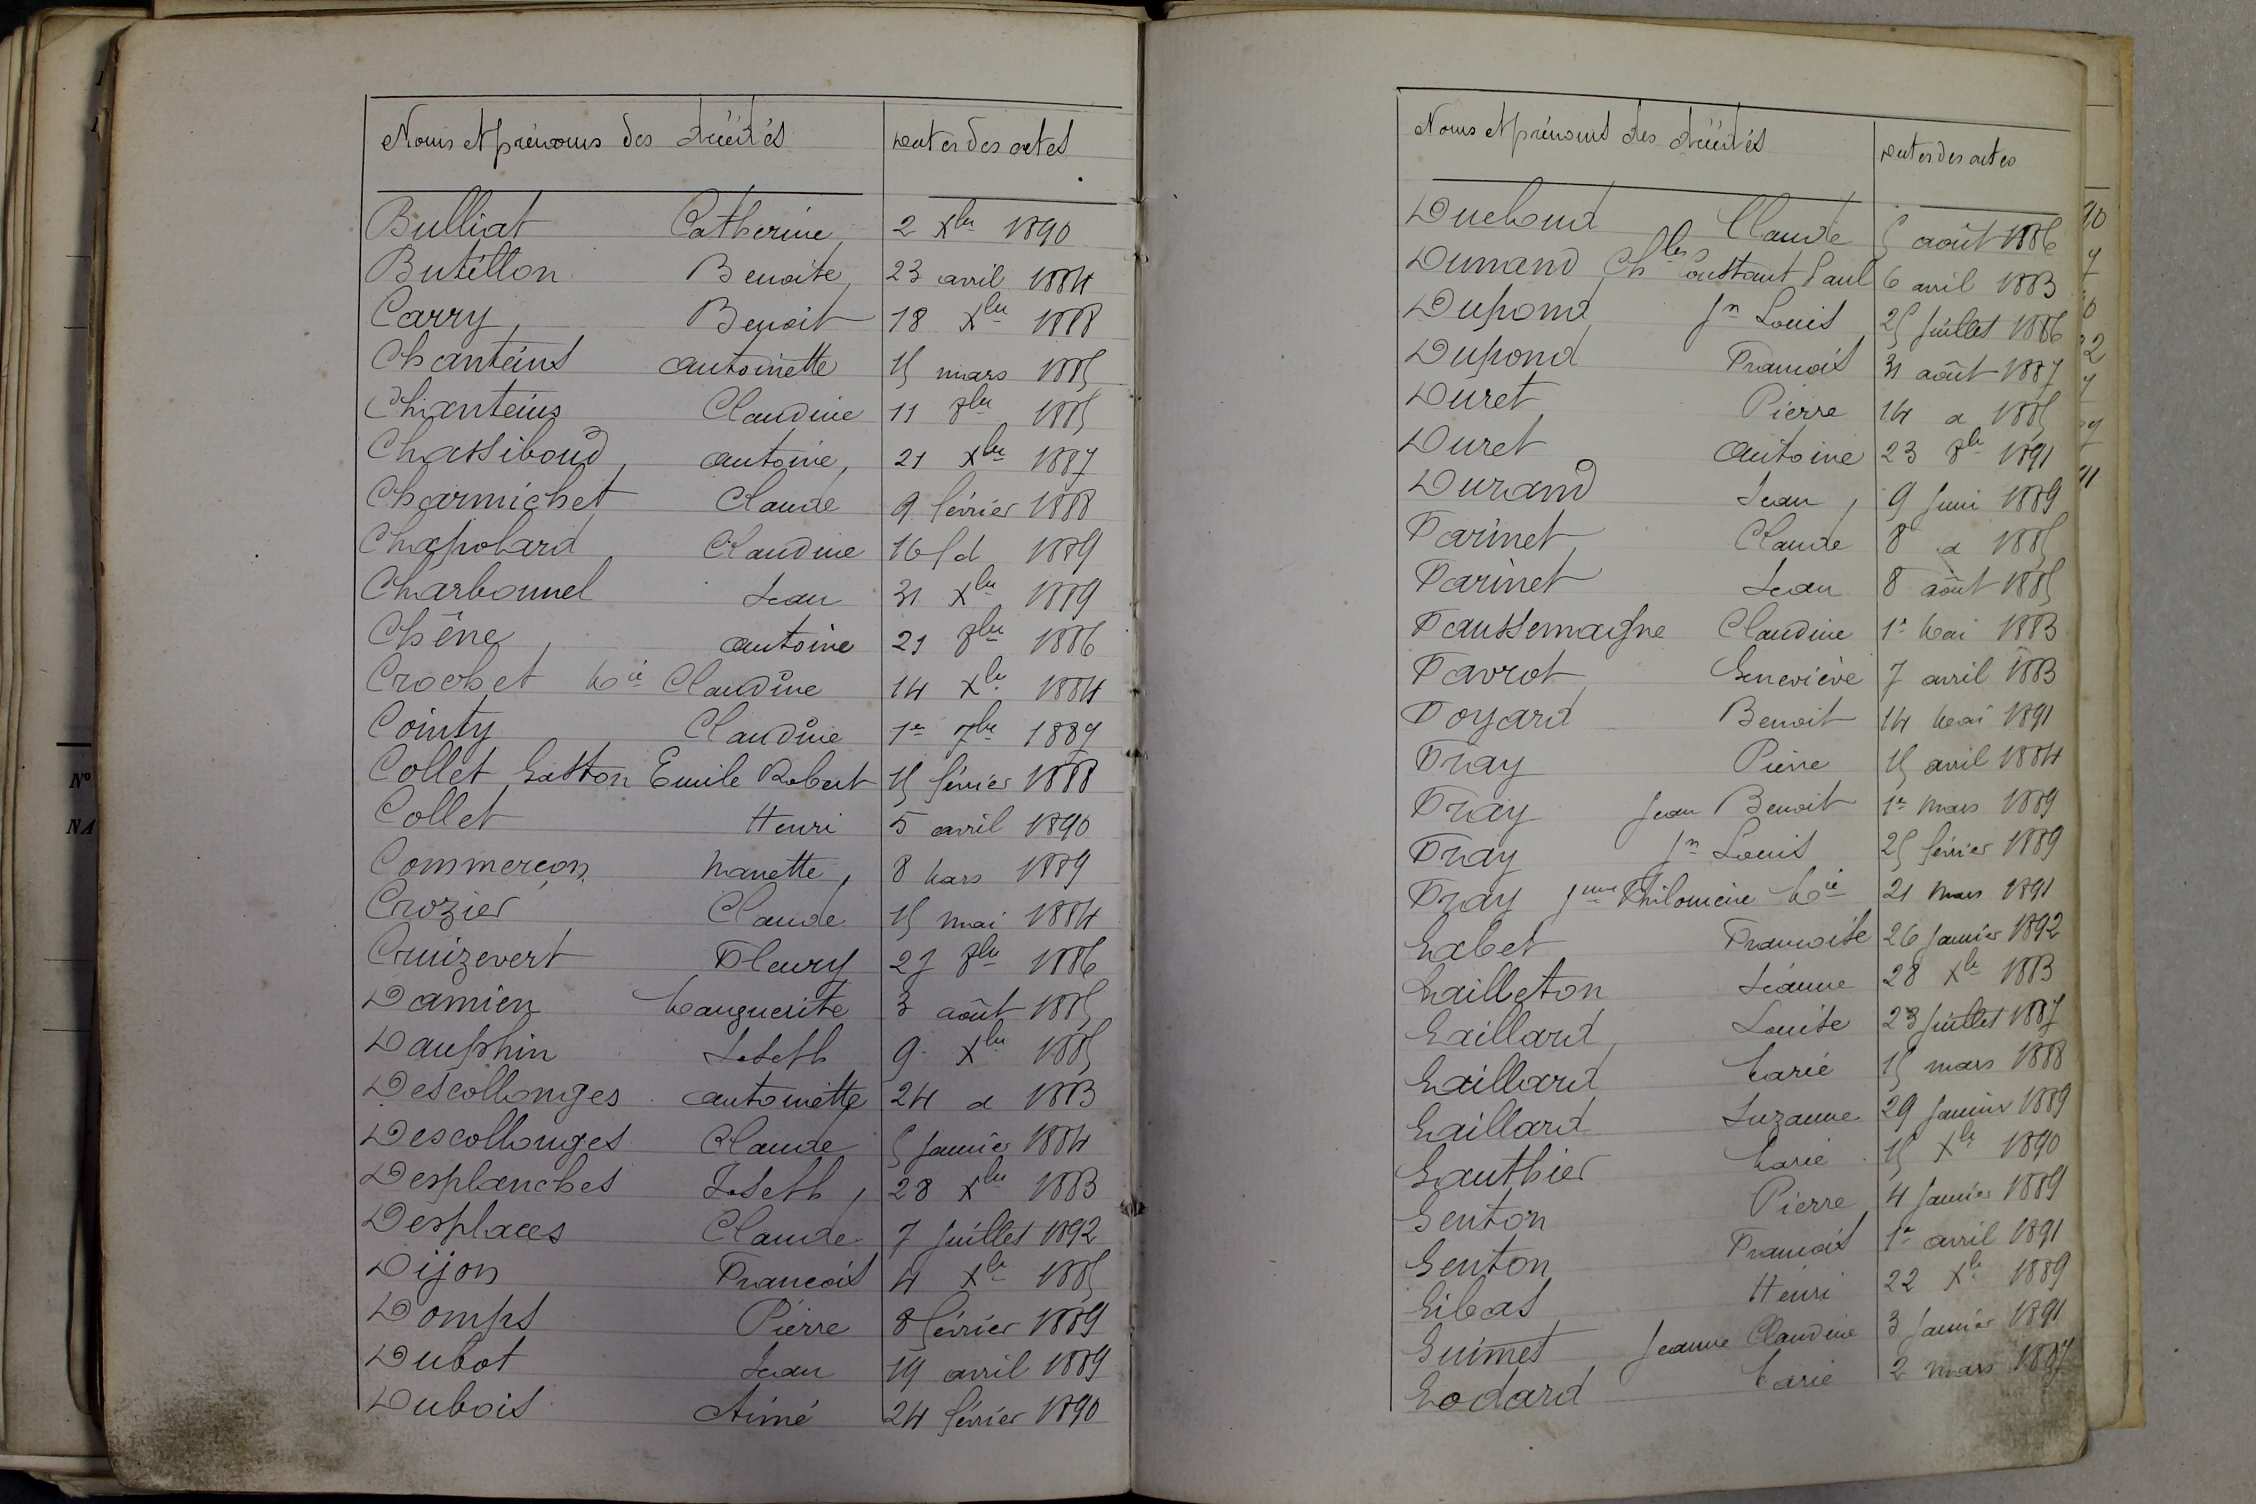 Noms et prénoms des décédés Dates des actes
Bulliat Catherine, 2 Xbre 1890
Butillon Benoite, 23 avril 1884
Carry, Benoit 18 Xbre 1888
Chanteins antoinette 15 mars 1885
Chanteins Claudine 11 8bre 1885
Chassiboud, antoine, 21 Xbre 1887
Charmichet Claude 9 février 1888
Chapolard Claudine 16 d 1889
Charbonnel Jean 31 Xbre 1889
Chêne, antoine 21 8bre 1886
Crochet Mie Claudine 14 Xbre 1884
Cointy Claudine 1er 7bre 1889
Collet Gaston Emile Robert 15 février 1888
Collet Henri 5 avril 1890
Commerçon Nanette, 8 Mars 1889
Crozier Claude 15 mai 1884
Cruizevert Fleury 27 8bre 1886
Damien Marguerite 3 août 1885
Dauphin Joseph 9 Xbre 1885
Descollonges antoinette 24 d 1883
Descollonges Claude 5 Janvier 1884
Desplanches Joseph, 28 Xbre 1883
Desplaces Claude 7 Juillet 1892
Dijon Francois 4 Xbre 1885
Domps Pierre 8 février 1889
Dubot Jean 19 avril 1889
Dubois Aimé 24 février 1890
Noms et prénoms des décédés Dates des actes
Duchoud Claude 5 août 1886
Dumand Chles Constant Paul 6 avril 1883
Dupond Jn Louis 25 Juillet 1886
Dupond Francois 31 août 1887
Duret Pierre 14 d 1885
Duret Antoine 23 8bre 1891
Durand Jean, 9 Juin 1889
Farinet Claude 8 d 1885
Farinet Jean 8 août 1885
Faussemagne Claudine 1er Mai 1883
Favrot Geneviève 7 avril 1883
Foyard Benoit 14 Mai 1891
Fray Pierre 15 avril 1884
Fray Jean Benoit 1er Mars 1889
Fray Jn Louis 25 février 1889
Fray Jnne Philomène Mie 21 Mars 1891
Gabet Francoise 26 Janvier 1892
Gailleton Jeanne 28 Xbre 1883
Gaillard Louise 23 Juillet 1887
Gaillard Marie 15 mars 1888
Gaillard Suzanne 29 Janvier 1889
Gauthier Marie 15 Xbre 1890
Genton Pierre 4 Janvier 1889
Genton Francois 1er avril 1891
Gibas Henri 22 Xbre 1889
Guimet Jeanne Claudine 3 Janvier 1891
Godard Marie 2 mars 1887